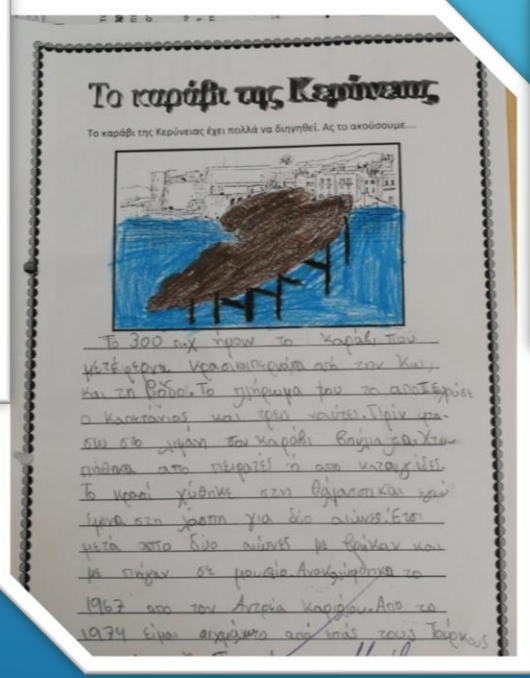 Το καράβι της Κερύνειας
Το καράβι της Κερύνειας έχει πολλά να διηγηθεί. Ας το ακούσουμε....
Το 300 π.χ ήμουν το καράβι που
μετέφερνα από την Κω,
και τη Ρόδο. Το πλήρωμα μου το
ο Καπετάνιος και τρεις ναύτες. Πρίν
στο λιμάνι του καράβι
από πειρατές ή από καταιγίδες.
Το κρασί χύθηκε στη θάλασσα και εγώ
έμηνα στη λάσπη για δύο αιώνες. Έτσι
μετά απο δύο αιώνες με βρήκαν και
με πήγαν σε μουσείο. το
1967 απο τον Αντρέα Καριόλου. Απο το
1974 είμαι από εσάς τους Τούρκους